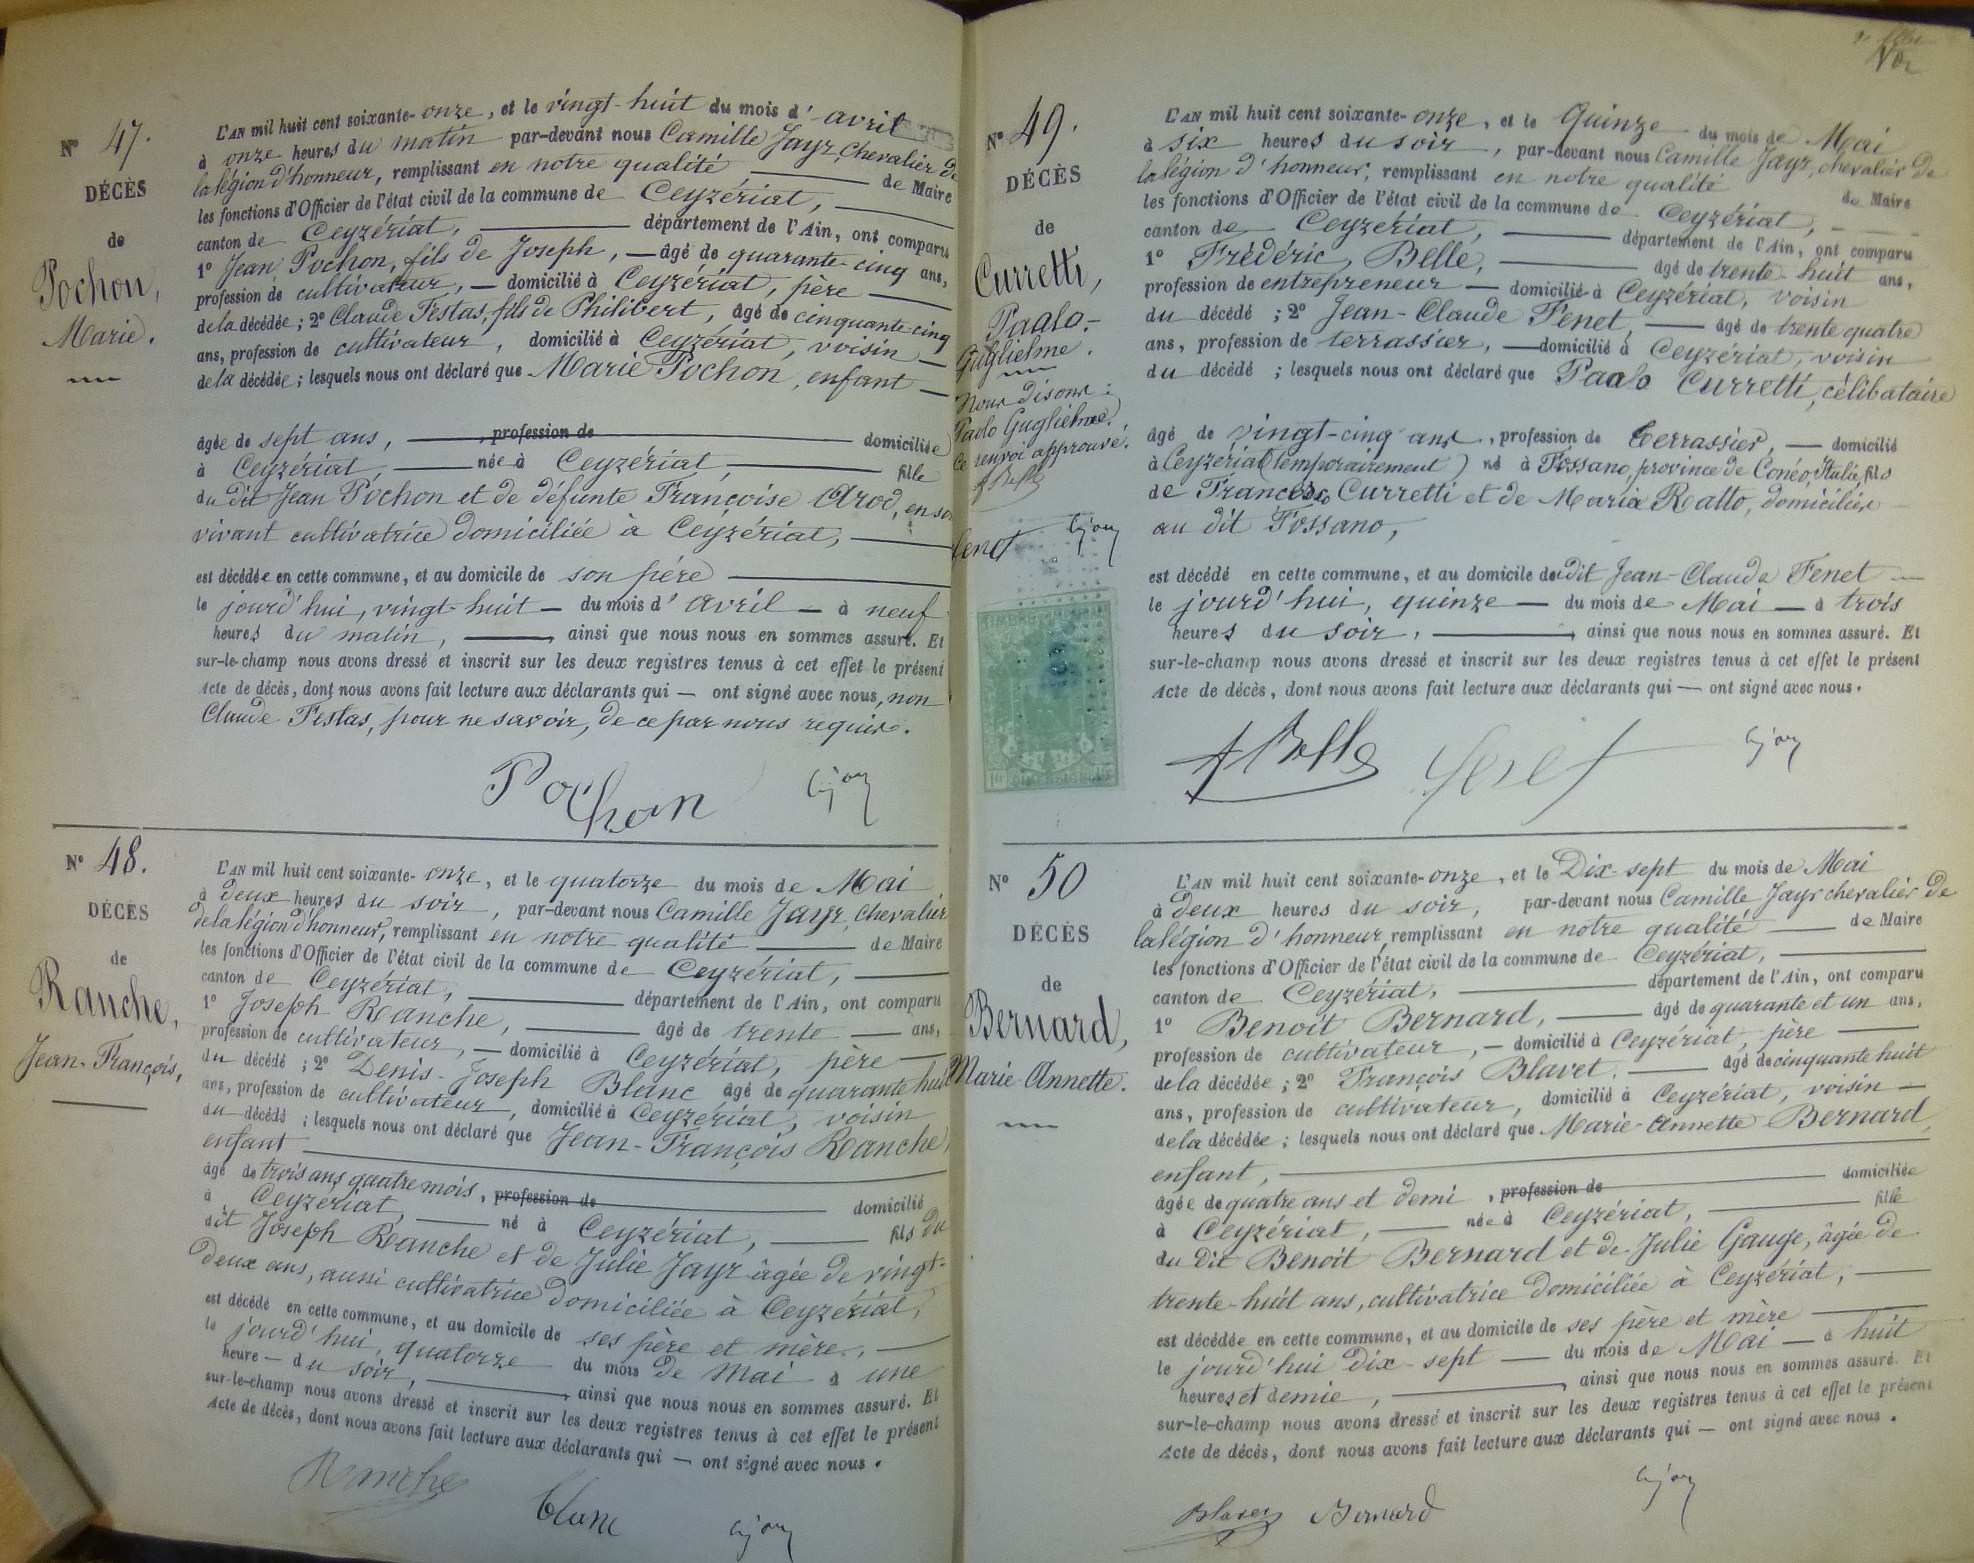 N° 47.
DÉCÈS
de
Pochon,
Marie.
L'AN mil huit cent soixante-onze, et le vingt-huit du mois d'avril
à onze heures du matin par-devant nous Camille Jayr, chevalier de
la légion d'honneur, remplissant en notre qualité de Maire
les fonctions d'Officier de l'état civil de la commune de Ceyzériat,
canton de Ceyzériat, département de l'Ain, ont comparu
1° Jean Pochon, fils de Joseph, âgé de quarante-cinq ans,
profession de cultivateur, domicilié à Ceyzériat, père
de la décédée; 2° Claude Festas, fils de Philibert, âgé de cinquante cinq
ans, profession de cultivateur, domicilié à Ceyzériat, voisin
de la décédée; lesquels nous ont déclaré que Marie Pochon, enfant
âgée de sept ans, profession de domiciliée
à Ceyzériat, née à Ceyzériat, fille
du dit Jean Pochon et de défunte Françoise Arod, en son
vivant cultivatrice domiciliée à Ceyzériat,
est décédée en cette commune, et au domicile de son père
le jourd'hui, vingt-huit du mois d'avril à neuf
heures du matin, ainsi que nous nous en sommes assuré. Et
sur-le-champ nous avons dressé et inscrit sur les deux registres tenus à cet effet le présent
Acte de décès, dont nous avons fait lecture aux déclarants qui ont signé avec nous, non
Claude Festas, pour ne savoir, de ce par nous requis.
Pochon
N° 48.
DÉCÈS
de
Ranche,
Jean-François,
L'AN mil huit cent soixante-onze, et le quatorze du mois de Mai
à deux heures du soir, par-devant nous Camille Jayr, Chevalier
de la légion d'honneur, remplissant en notre qualité de Maire
les fonctions d'Officier de l'état civil de la commune de Ceyzériat,
canton de Ceyzériat, département de l'Ain, ont comparu
1° Joseph Ranche, âgé de trente ans,
profession de cultivateur, domicilié à Ceyzériat, père
du décédé; 2° Denis-Joseph Blanc âgé de quarante huit
ans, profession de cultivateur, domicilié à Ceyzériat, voisin
du décédé; lesquels nous ont déclaré que Jean-François Ranche,
enfant
âgé de trois ans quatre mois, profession de domicilié
à Ceyzériat, né à Ceyzériat, fils du
dit Joseph Ranche et de Julie Jayr âgée de vingt-
deux ans, aussi cultivatrice domiciliée à Ceyzériat,
est décédé en cette commune, et au domicile de ses père et mère,
le jourd'hui, quatorze du mois de Mai à une
heure du soir, ainsi que nous nous en sommes assuré. Et
sur-le-champ nous avons dressé et inscrit sur les deux registres tenus à cet effet le présent
Acte de décès, dont nous avons fait lecture aux déclarants qui ont signé avec nous.
Ranche
Blanc
N° 49.
DÉCÈS
de
Curretti,
Paolo-
Guglielme.
Nous disons:
Paolo Guglielme.
Ce renvoi approuvé.
F Belle
Fenet
L'AN mil huit cent soixante-onze, et le Quinze du mois de Mai
à six heures du soir, par-devant nous Camille Jayr, chevalier de
la légion d'honneur, remplissant en notre qualité de Maire
les fonctions d'Officier de l'état civil de la commune de Ceyzériat,
canton de Ceyzériat, département de l'Ain, ont comparu
1° Frédéric Belle, âgé de trente-huit ans,
profession de entrepreneur domicilié à Ceyzériat, voisin
du décédé; 2° Jean-Claude Fenet, âgé de trente quatre
ans, profession de terrassier, domicilié à Ceyzériat, voisin
du décédé; lesquels nous ont déclaré que Paolo Curretti, célibataire
âgé de vingt-cinq ans, profession de terrassier, domicilié
à Ceyzériat (temporairement) né à Fossano, province de Conéo, Italie, fils
de Francesco Curretti et de Maria Ralto, domiciliés
au dit Fossano,
est décédé en cette commune, et au domicile du dit Jean-Claude Fenet
le jourd'hui, quinze du mois de Mai à trois
heures du soir, ainsi que nous nous en sommes assuré. Et
sur-le-champ nous avons dressé et inscrit sur les deux registres tenus à cet effet le présent
Acte de décès, dont nous avons fait lecture aux déclarants qui ont signé avec nous.
F Belle
Fenet
N° 50
DÉCÈS
de
Bernard,
Marie-Annette.
L'AN mil huit cent soixante-onze, et le Dix-sept du mois de Mai
à deux heures du soir, par-devant nous Camille Jayr chevalier de
la légion d'honneur, remplissant en notre qualité de Maire
les fonctions d'Officier de l'état civil de la commune de Ceyzériat,
canton de Ceyzériat, département de l'Ain, ont comparu
1° Benoit Bernard, âgé de quarante et un ans,
profession de cultivateur, domicilié à Ceyzériat, père
de la décédée; 2° François Blavet. âgé de cinquante huit
ans, profession de cultivateur, domicilié à Ceyzériat, voisin
de la décédée; lesquels nous ont déclaré que Marie-Annette Bernard,
enfant,
âgée de quatre ans et demi, profession de domiciliée
à Ceyzériat, née à Ceyzériat, fille
du dit Benoit Bernard et de Julie Gauge, âgée de
trente-huit ans, cultivatrice domiciliée à Ceyzériat,
est décédée en cette commune, et au domicile de ses père et mère
le jourd'hui dix-sept du mois de Mai à huit
heures et demie, ainsi que nous nous en sommes assuré. Et
sur-le-champ nous avons dressé et inscrit sur les deux registres tenus à cet effet le présent
Acte de décès, dont nous avons fait lecture aux déclarants qui ont signé avec nous.
Blavet Bernard